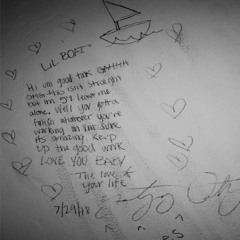 LIL BOAT
Hi um good talk
this isnt straight
but im
alone. Well you gotta
finish whatever you're
working on im sure
its amazing. Keep
up the good work
LOVE YOU BABY
The love of
your life
7/29/18